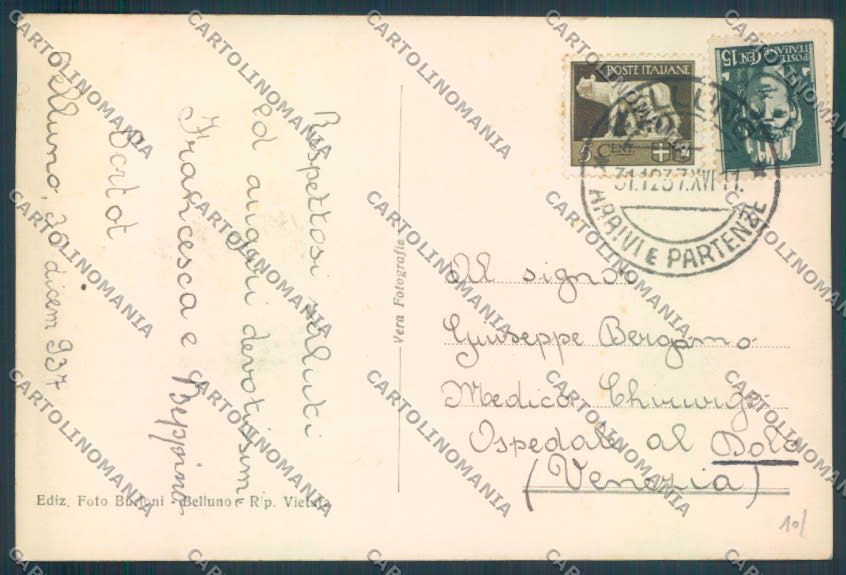 Belluno, 30 dicem 937
Rispettosi saluti
ed auguri devotissimi
Francesca e Beppino
Bortot
Vera Fotografia
Ediz. Foto Burloni - Belluno - Rip. Vietata
POSTE ITALIANE
5 CENT.
POSTE ITALIANE
CENT. 15
BELLUNO
31.12.37.XVI 11.
ARRIVI E PARTENZE
Al signor
Giuseppe Bergamo
Medico Chirurgo
Ospedale al Dolo
(Venezia)
10/
CARTOLINOMANIA